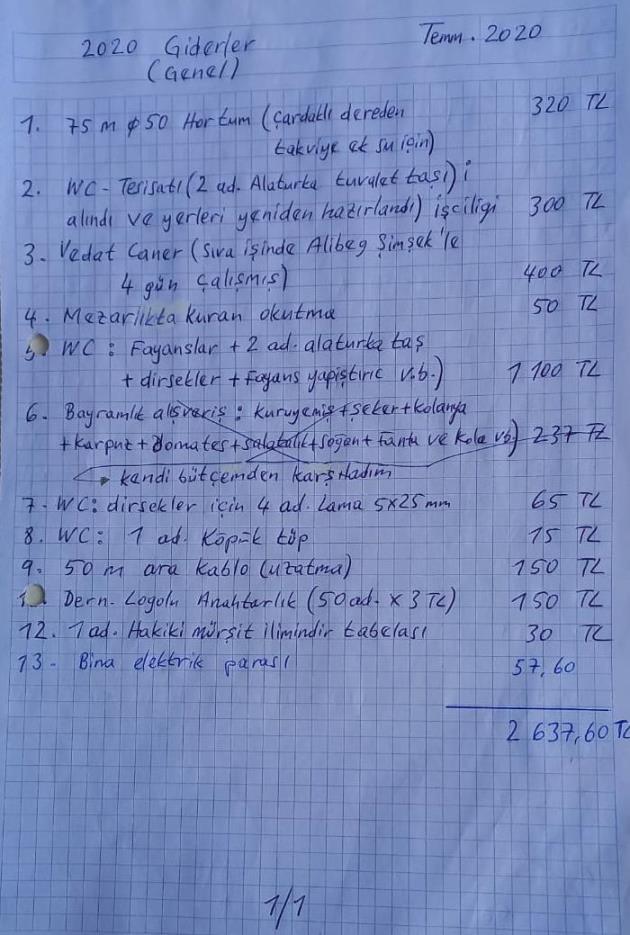 2020 Giderler Temm. 2020
(Genel)
1. 75 m ϕ50 Hortum (Çardaklı dereden 320 TL
takviye ek su için)
2. WC-Tesisatı (2 ad. Alaturka tuvalet taşı) i
alındı ve yerleri yeniden hazırlandı) işciliği 300 TL
3. Vedat Caner (Sıva işinde Alibeg Şimşek'le
4 gün çalışmış) 400 TL
4. Mezarlıkta kuran okutma 50 TL
5 WC: Fayanslar + 2 ad. alaturka taş
+ dirsekler + fayans yapıştırıc v.b.) 1 100 TL
6. Bayramlık alışveriş: kuruyemiş + şeker + kolanya
+ karpuz + domates + salatalık + soğan + fanta ve kola vb) 237 TL
kendi bütçemden karşıladım
7. WC: dirsekler için 4 ad. Lama 5x25 mm 65 TL
8. WC: 1 ad. Köpük tüp 15 TL
9. 50 m ara kablo (uzatma) 150 TL
1 Dern. Logolu Anahtarlık (50 ad. x 3 TL) 150 TL
12. 1 ad. Hakiki mürşit ilimindir tabelası 30 TL
13- Bina elektrik parası 57,60
2 637,60 TL
1/1